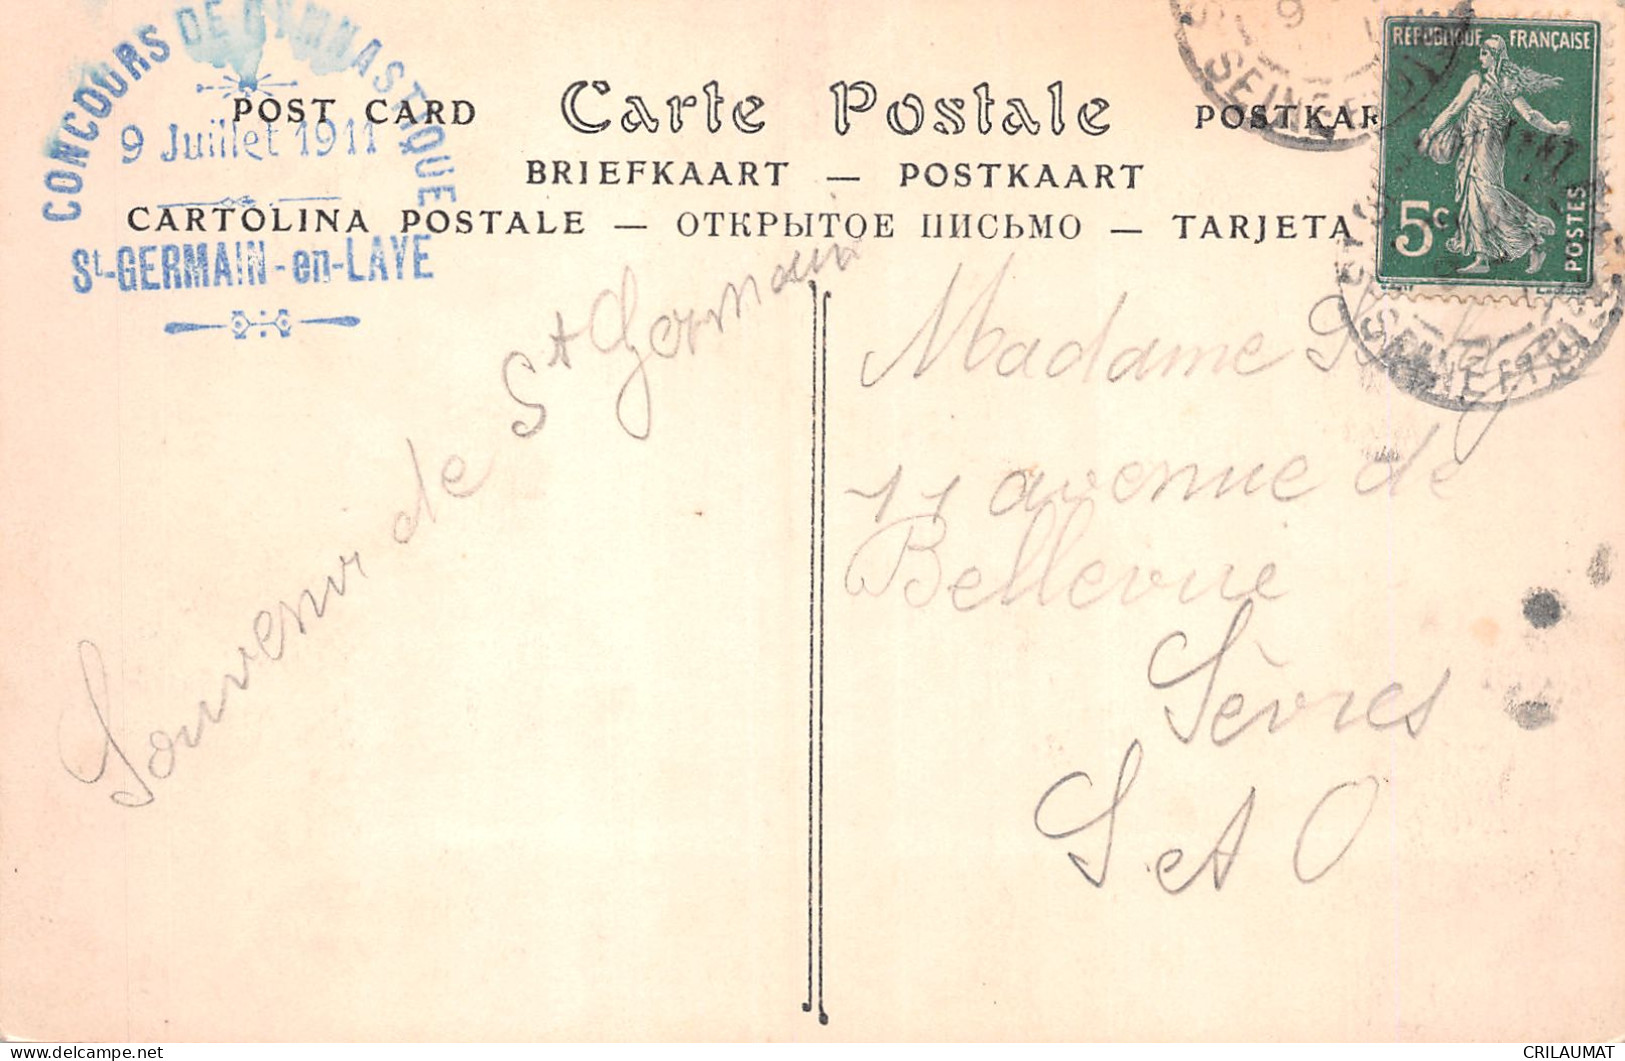 CONCOURS DE GYMNASTIQUE
9 Juillet 1911
St-GERMAIN-en-LAYE
POST CARD Carte Postale POSTKAR
BRIEFKAART — POSTKAART
CARTOLINA POSTALE — ОТКРЫТОЕ ПИСЬМО — TARJETA
RÉPUBLIQUE FRANÇAISE
5c
POSTES
SEINE ET OISE
SEINE ET OISE
Souvenir de St Germain
Madame
11 avenue de
Bellevue
Sèvres
S et O
CRILAUMAT